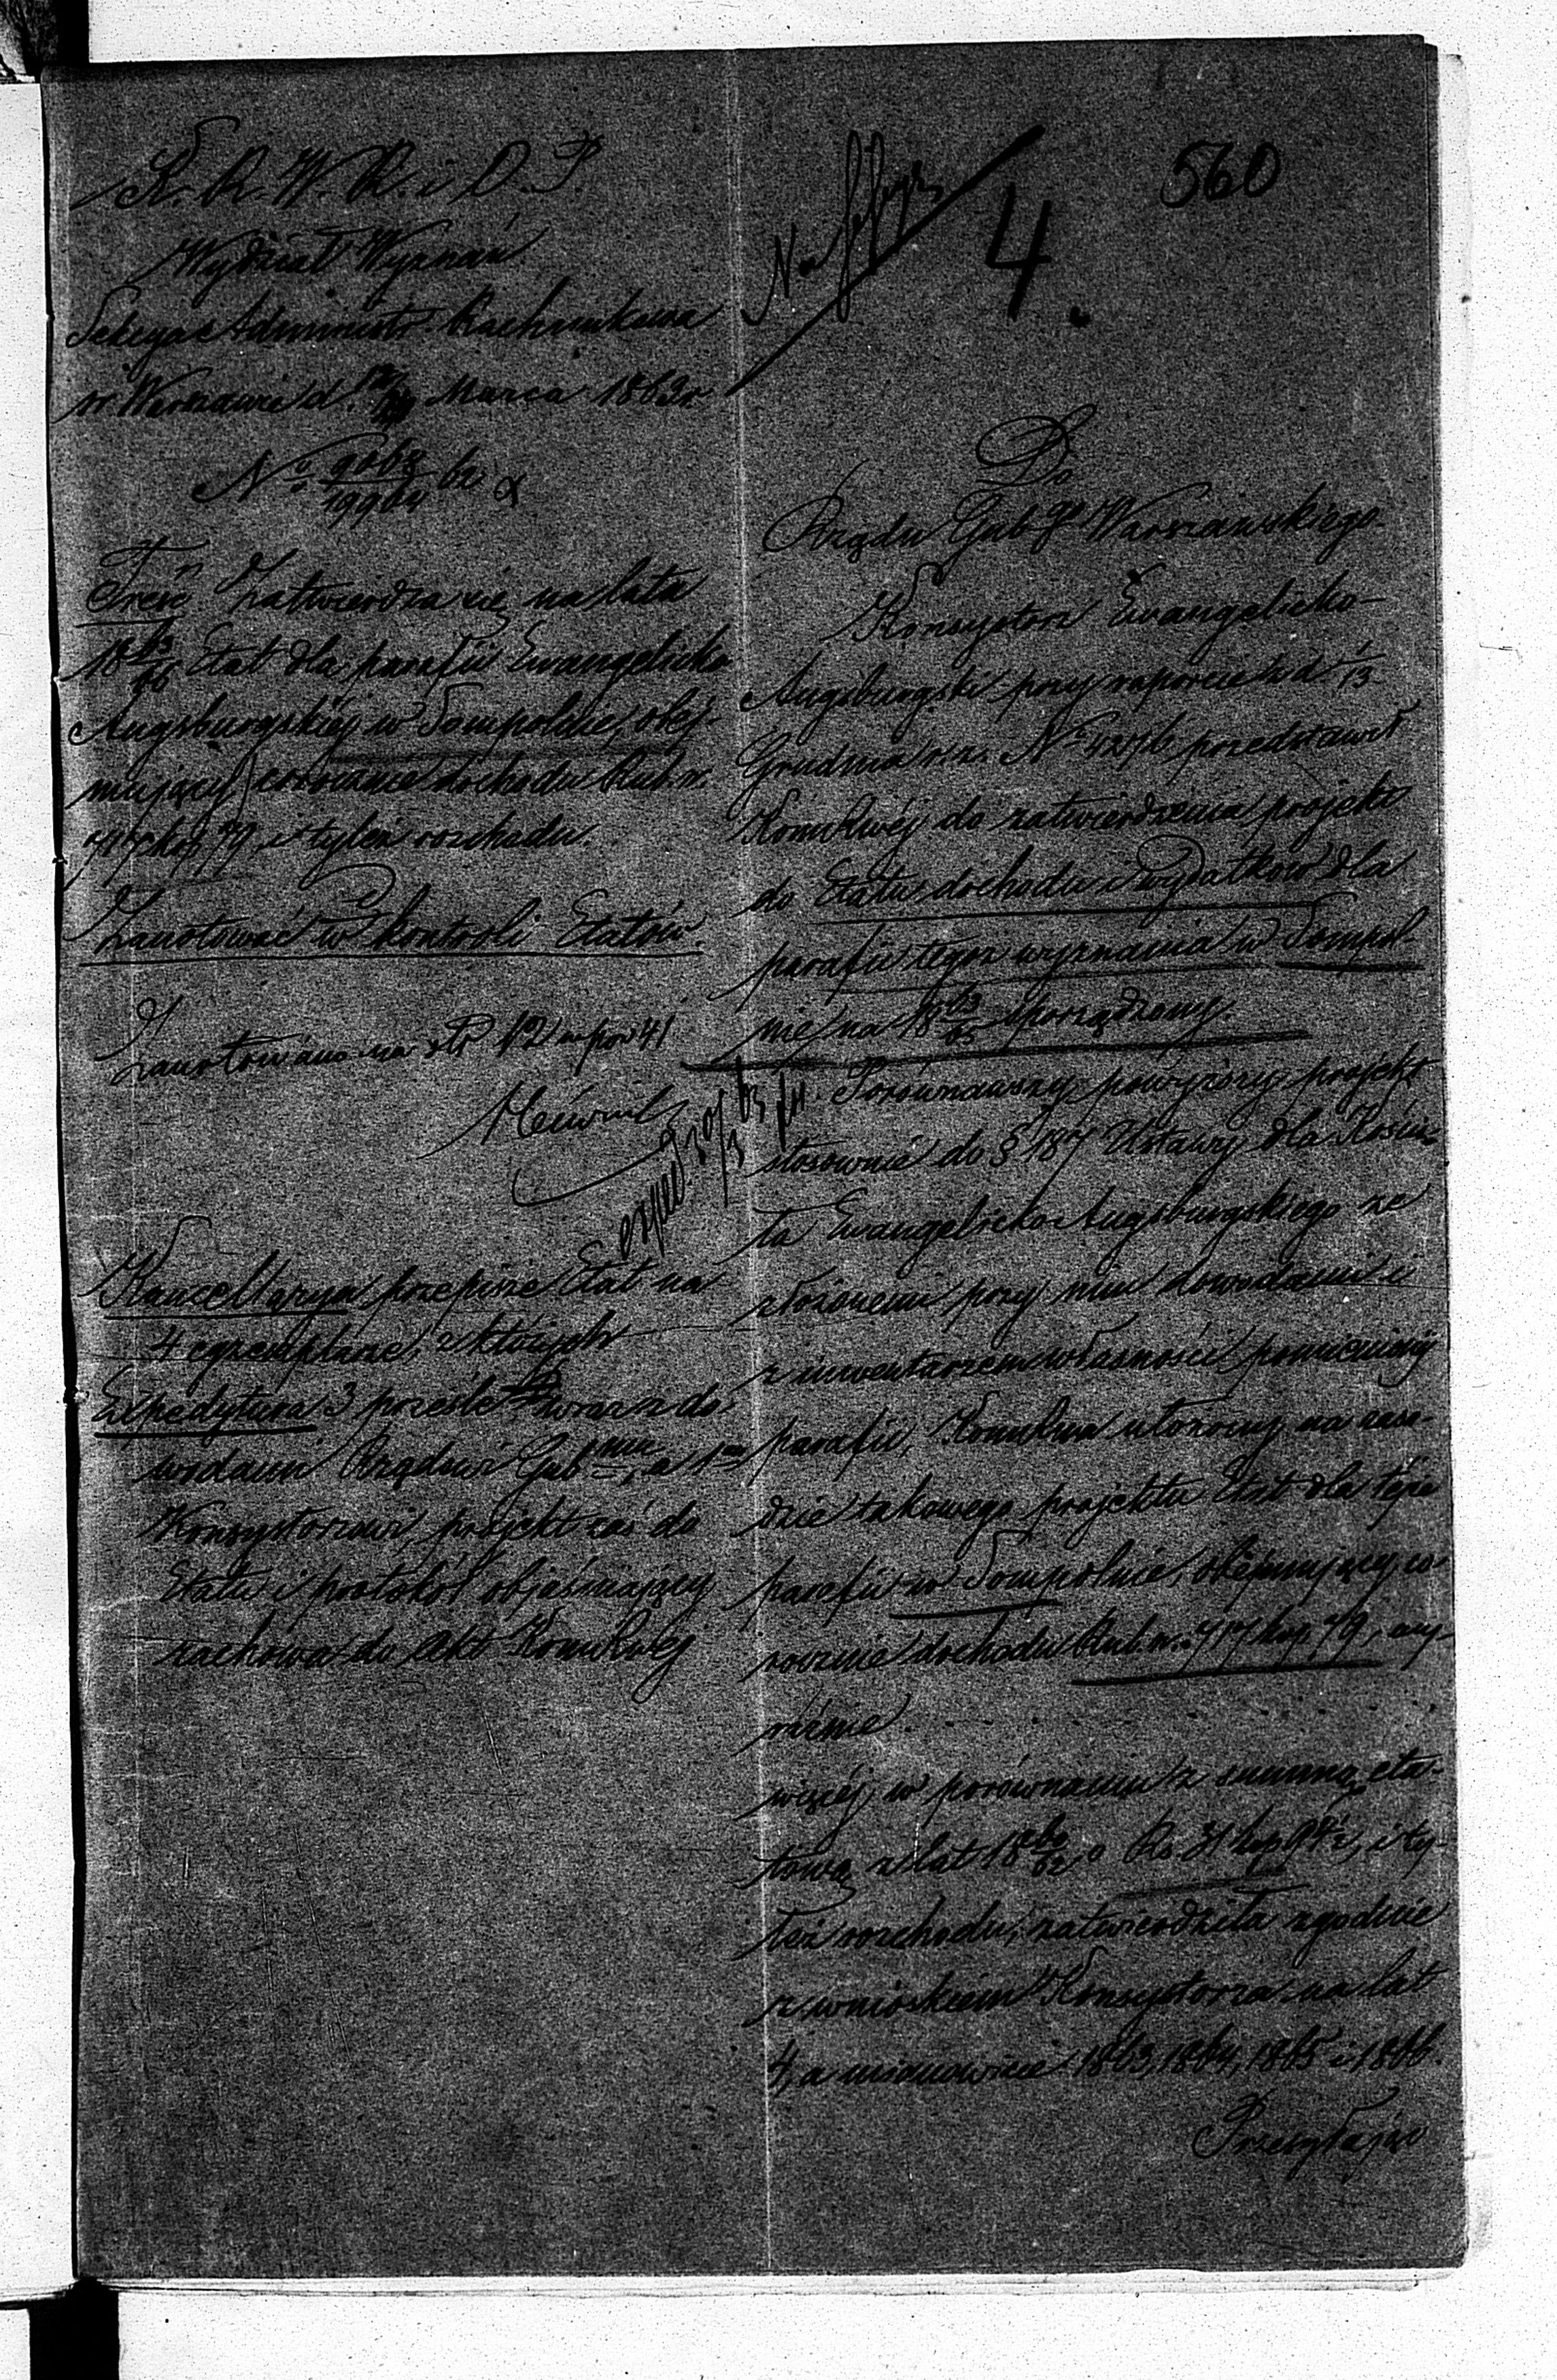 560
4.
K. R. W. R. i O. P.
Wydział Wyznań
Sekcya Administr. Rachunkowa
w Warszawie d. Marca 1863 r.
No
Treść Zatwierdza się na lata
1863/66 Etat dla parafii Ewangelicko
Augsburgskiéj w Sompolnie, obej-
mujący corocznie dochodu Rub. sr.
717 kop. 79, i tyleż rozchodu.
Zanotować w kontroli Etatów.
Zanotowano na str 12 poz 41
Kancellarya przepisze Etat na
4 egzemplarze, z których
Expedytura 3 prześle wraz z do-
wodami Rządowi Gubmu, a 1
Konsystorzowi, projekt zaś do
Etatu i protokół objaśniający
zachowa do akt Kom Rwéj
Do
Rządu Gubgo Warszawskiego
Konsystorz Ewangelicko-
Augsburgski przy raporcie z d. 1/13
Grudnia r. z. No przedstawił
Kom Rwéj do zatwierdzenia projekt
do Etatu dochodu i wydatków dla
parafii tegoż wyznania w Sompol-
nie, na 1863/65 sporządzony.
Porównawszy powyższy projekt
stosownie do § 187 Ustawy dla Kościo-
ła Ewangelicko Augsburgskiego ze
złożonemi przy nim dowodami i
z inwentarzem własności pomienionéj
parafii, Kom Rwa ułożony na zasa-
dzie takowego projektu Etat dla téjże
parafii w Sompolnie, obejmujący co-
rocznie dochodu Rub. sr. 717 kop. 79, wy-
raźnie
więcéj w porównaniu z summą eta-
tową z lat 1860/62 o Rs. 31 kop. i ty-
leż rozchodu, zatwierdziła zgodnie
z wnioskiem Konsystorza na lat
4, a mianowicie 1863, 1864, 1865 i 1866.
Przesyłając